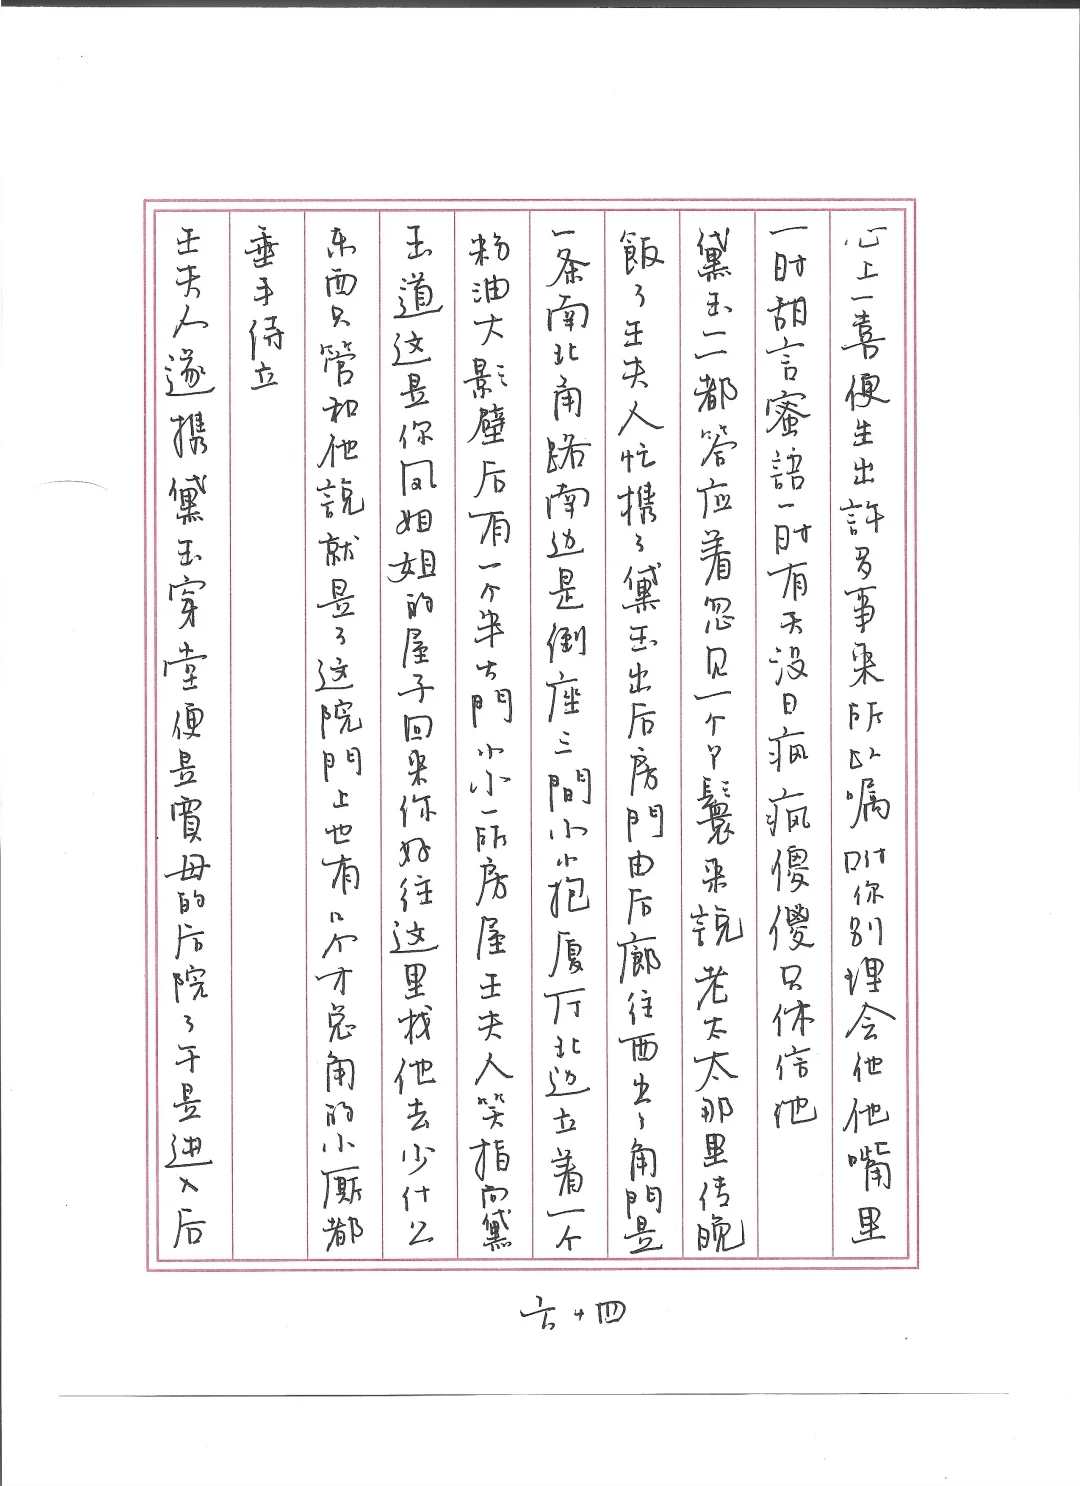 心上一喜便生出許多事来所以嘱咐你别理会他他嘴里
一时甜言蜜語一时有天没日疯疯傻傻只休信他
黛玉一一都答应着忽见一个丫鬟来説老太太那里传晚
飯了王夫人忙携了黛玉出后房門由后廊往西出了角門是
一条南北角路南边是倒座三間小小抱厦厅北边立着一个
粉油大影壁后有一个半大門小小一所房屋王夫人笑指向黛
玉道这是你凤姐姐的屋子回来你好往这里找他去少什么
东西只管和他説就是了这院門上也有几个才总角的小厮都
垂手侍立
王夫人遂携黛玉穿堂便是賈母的后院了于是进入后
六十四